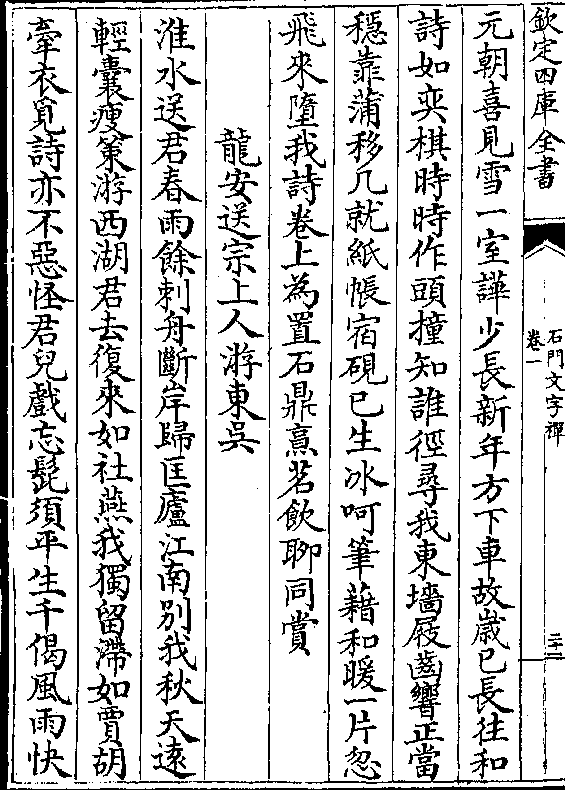 欽定四庫全書
石門文字禪
卷一
二十二
元朝喜見雪一室譁少長新年方下車故歲已長往和
詩如奕棋時時作頭撞知誰徑尋我東墻屐齒響正當
穩靠蒲移几就紙帳宿硯已生冰呵筆藉和暖一片忽
飛來墮我詩卷上為置石鼎烹茗飲聊同賞
龍安送宗上人游東吳
淮水送君春雨餘刺舟斷岸歸匡廬江南別我秋天遠
輕囊瘦策游西湖君去復來如社燕我獨留滯如賈胡
牽衣覓詩亦不惡怪君兒戲忘髭須平生千偈風雨快